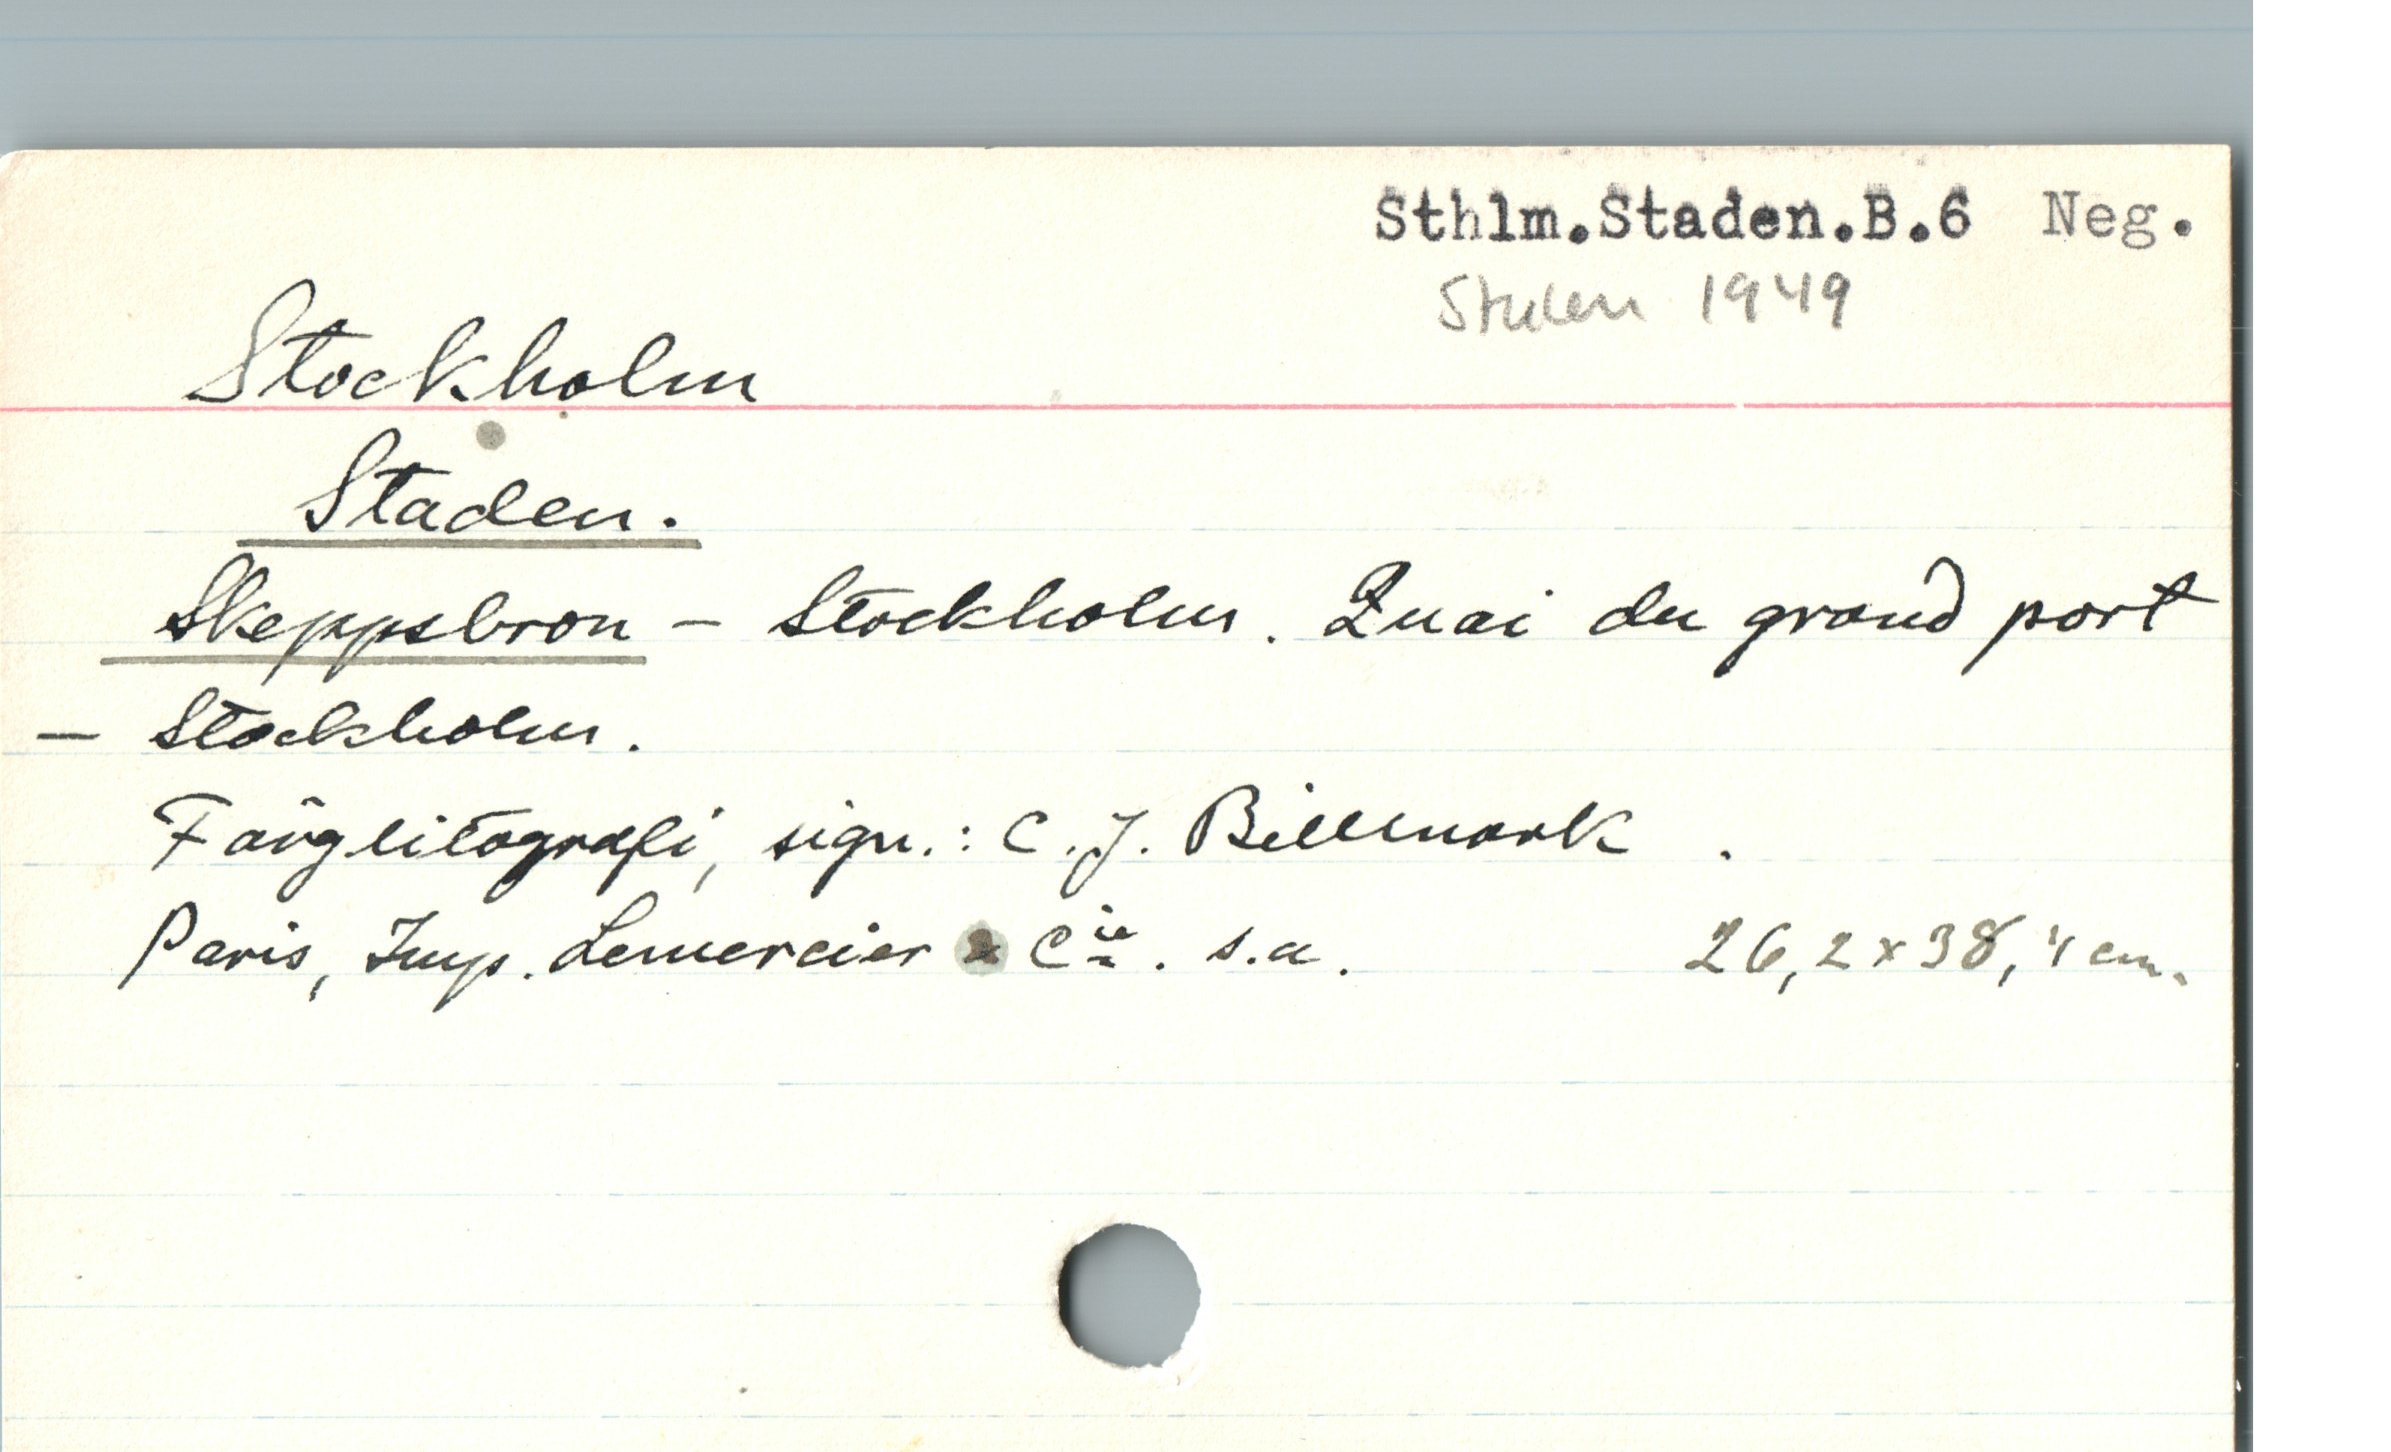 Sthlm.Staden.B.6 Neg.
Stulen 1949
Stockholm
Staden.
Skeppsbron - Stockholm. Quai du grand port
- Stockholm.
Färglitografi, sign.: C. J. Billmark .
Paris, Imp. Lemercier & Cie. s.a. 26,2 x 38,4 cm.